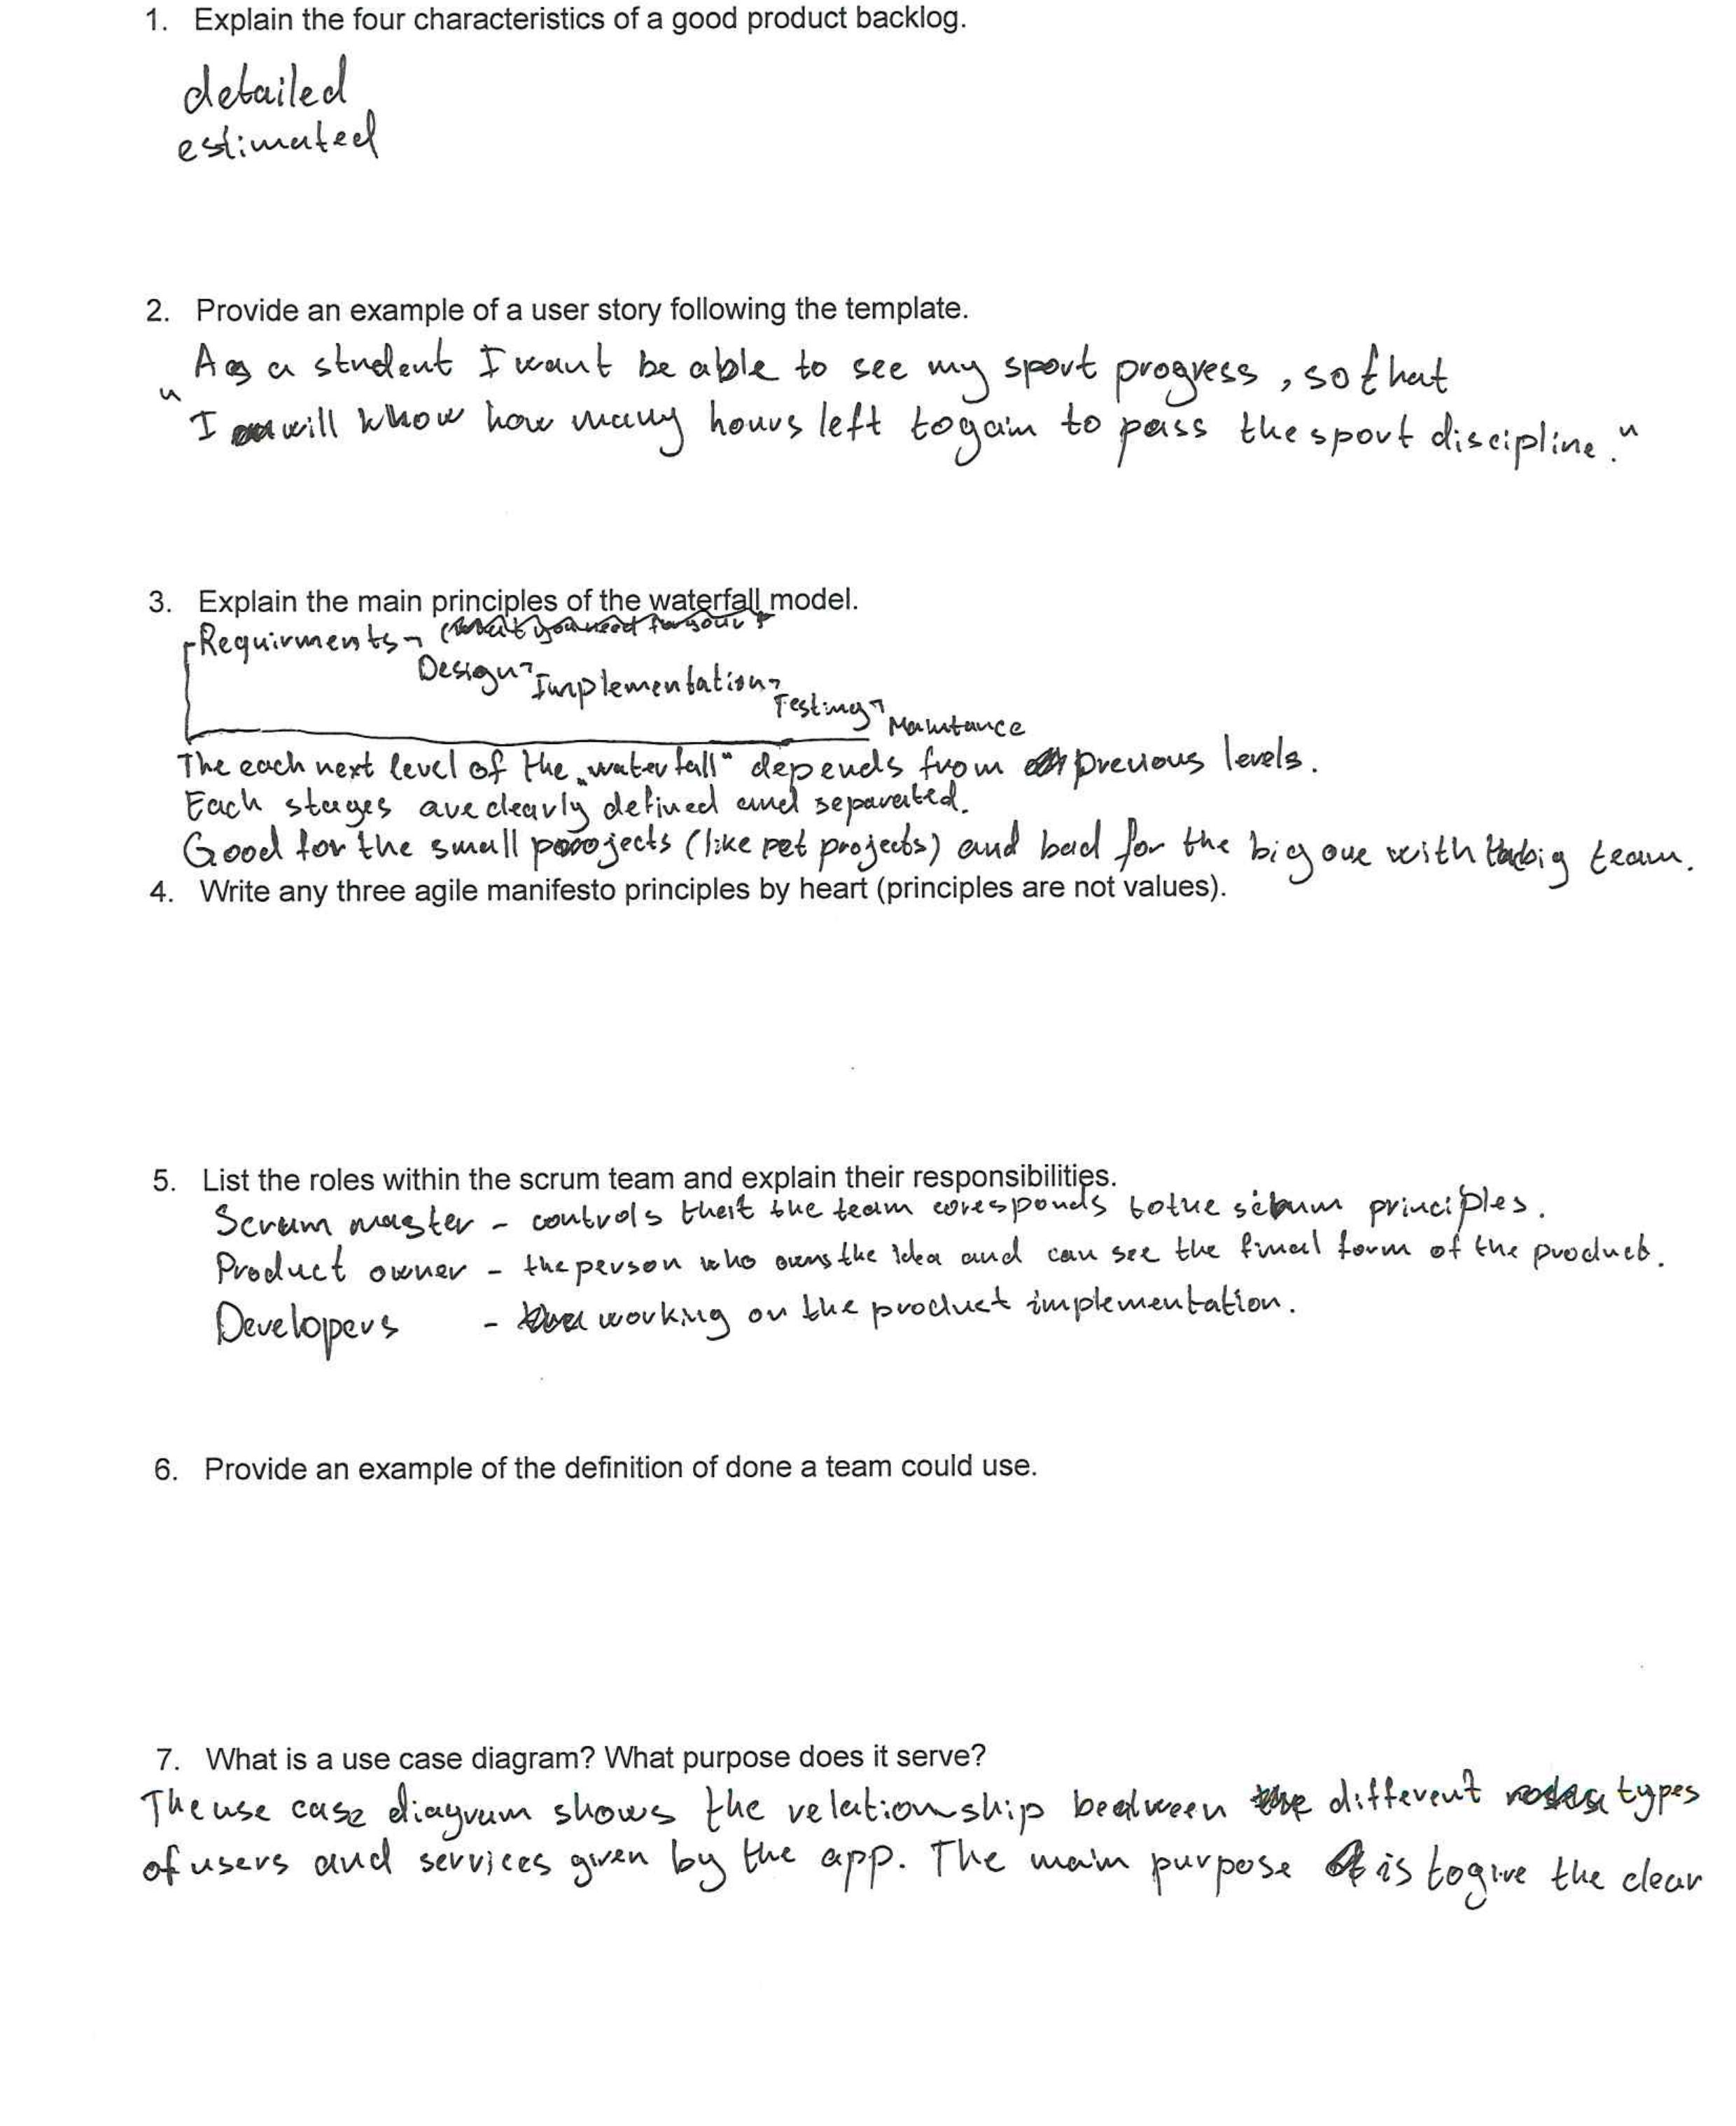 1. Explain the four characteristics of a good product backlog.
detailed
estimated
2. Provide an example of a user story following the template.
"As a student I want be able to see my sport progress, so that
I will know how many hours left to gain to pass the sport discipline."
3. Explain the main principles of the waterfall model.
Requirments
Design Implementation
Testing
Maintance
The each next level of the "waterfall" depends from previous levels.
Each stages are clearly defined and separated.
Good for the small projects (like pet projects) and bad for the big one with big team.
4. Write any three agile manifesto principles by heart (principles are not values).
5. List the roles within the scrum team and explain their responsibilities.
Scrum master - controls that the team coresponds to the scrum principles.
Product owner - the person who owns the idea and can see the final form of the product.
Developers - working on the product implementation.
6. Provide an example of the definition of done a team could use.
7. What is a use case diagram? What purpose does it serve?
The use case diagram shows the relationship bedween different types
of users and services given by the app. The main purpose is to give the clear